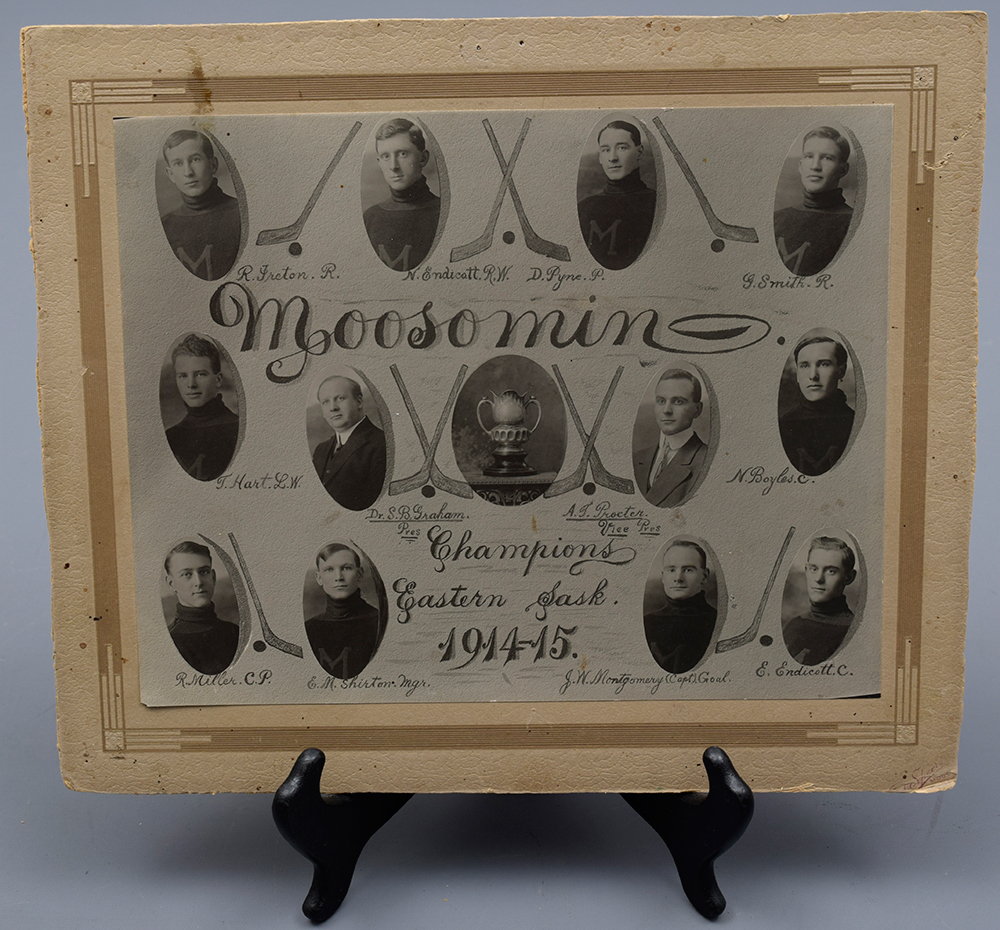 M
M
M
R. Ireton. R.
N. Endicott. R.W.
D. Pyne. P.
G. Smith. R.
Moosomin
T. Hart. L.W.
Dr. S.B. Graham.
Pres
A.T. Procter.
Vice Pres
N. Boyles. C.
Champions
Eastern Sask.
1914-15.
M
R. Miller. C.P.
E. M. Shirton. Mgr.
J. W. Montgomery (Capt) Goal.
E. Endicott. C.